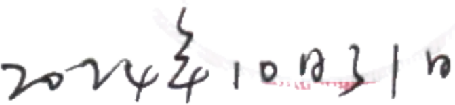 2024年10月31日